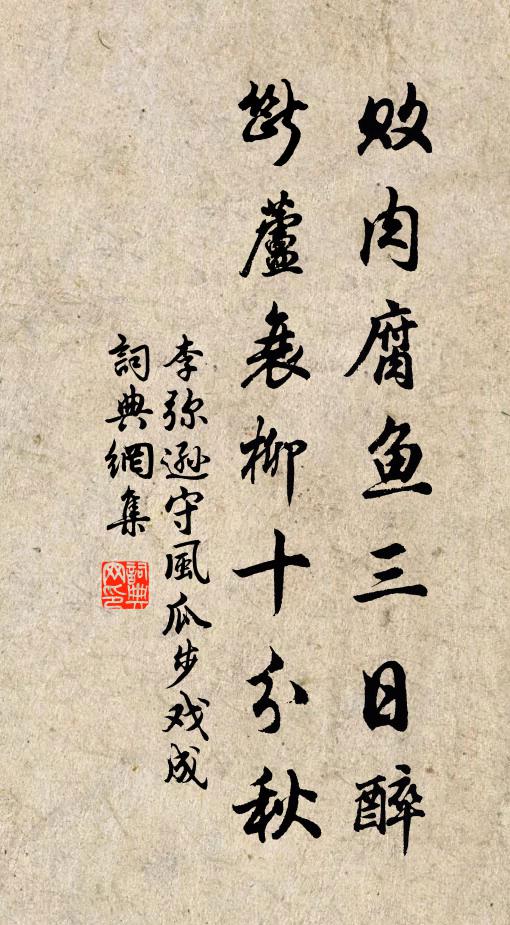 败肉腐鱼三日醉
断蘆衰柳十分秋
李弥遜守風瓜步戏成
詞典網集
詞典网印